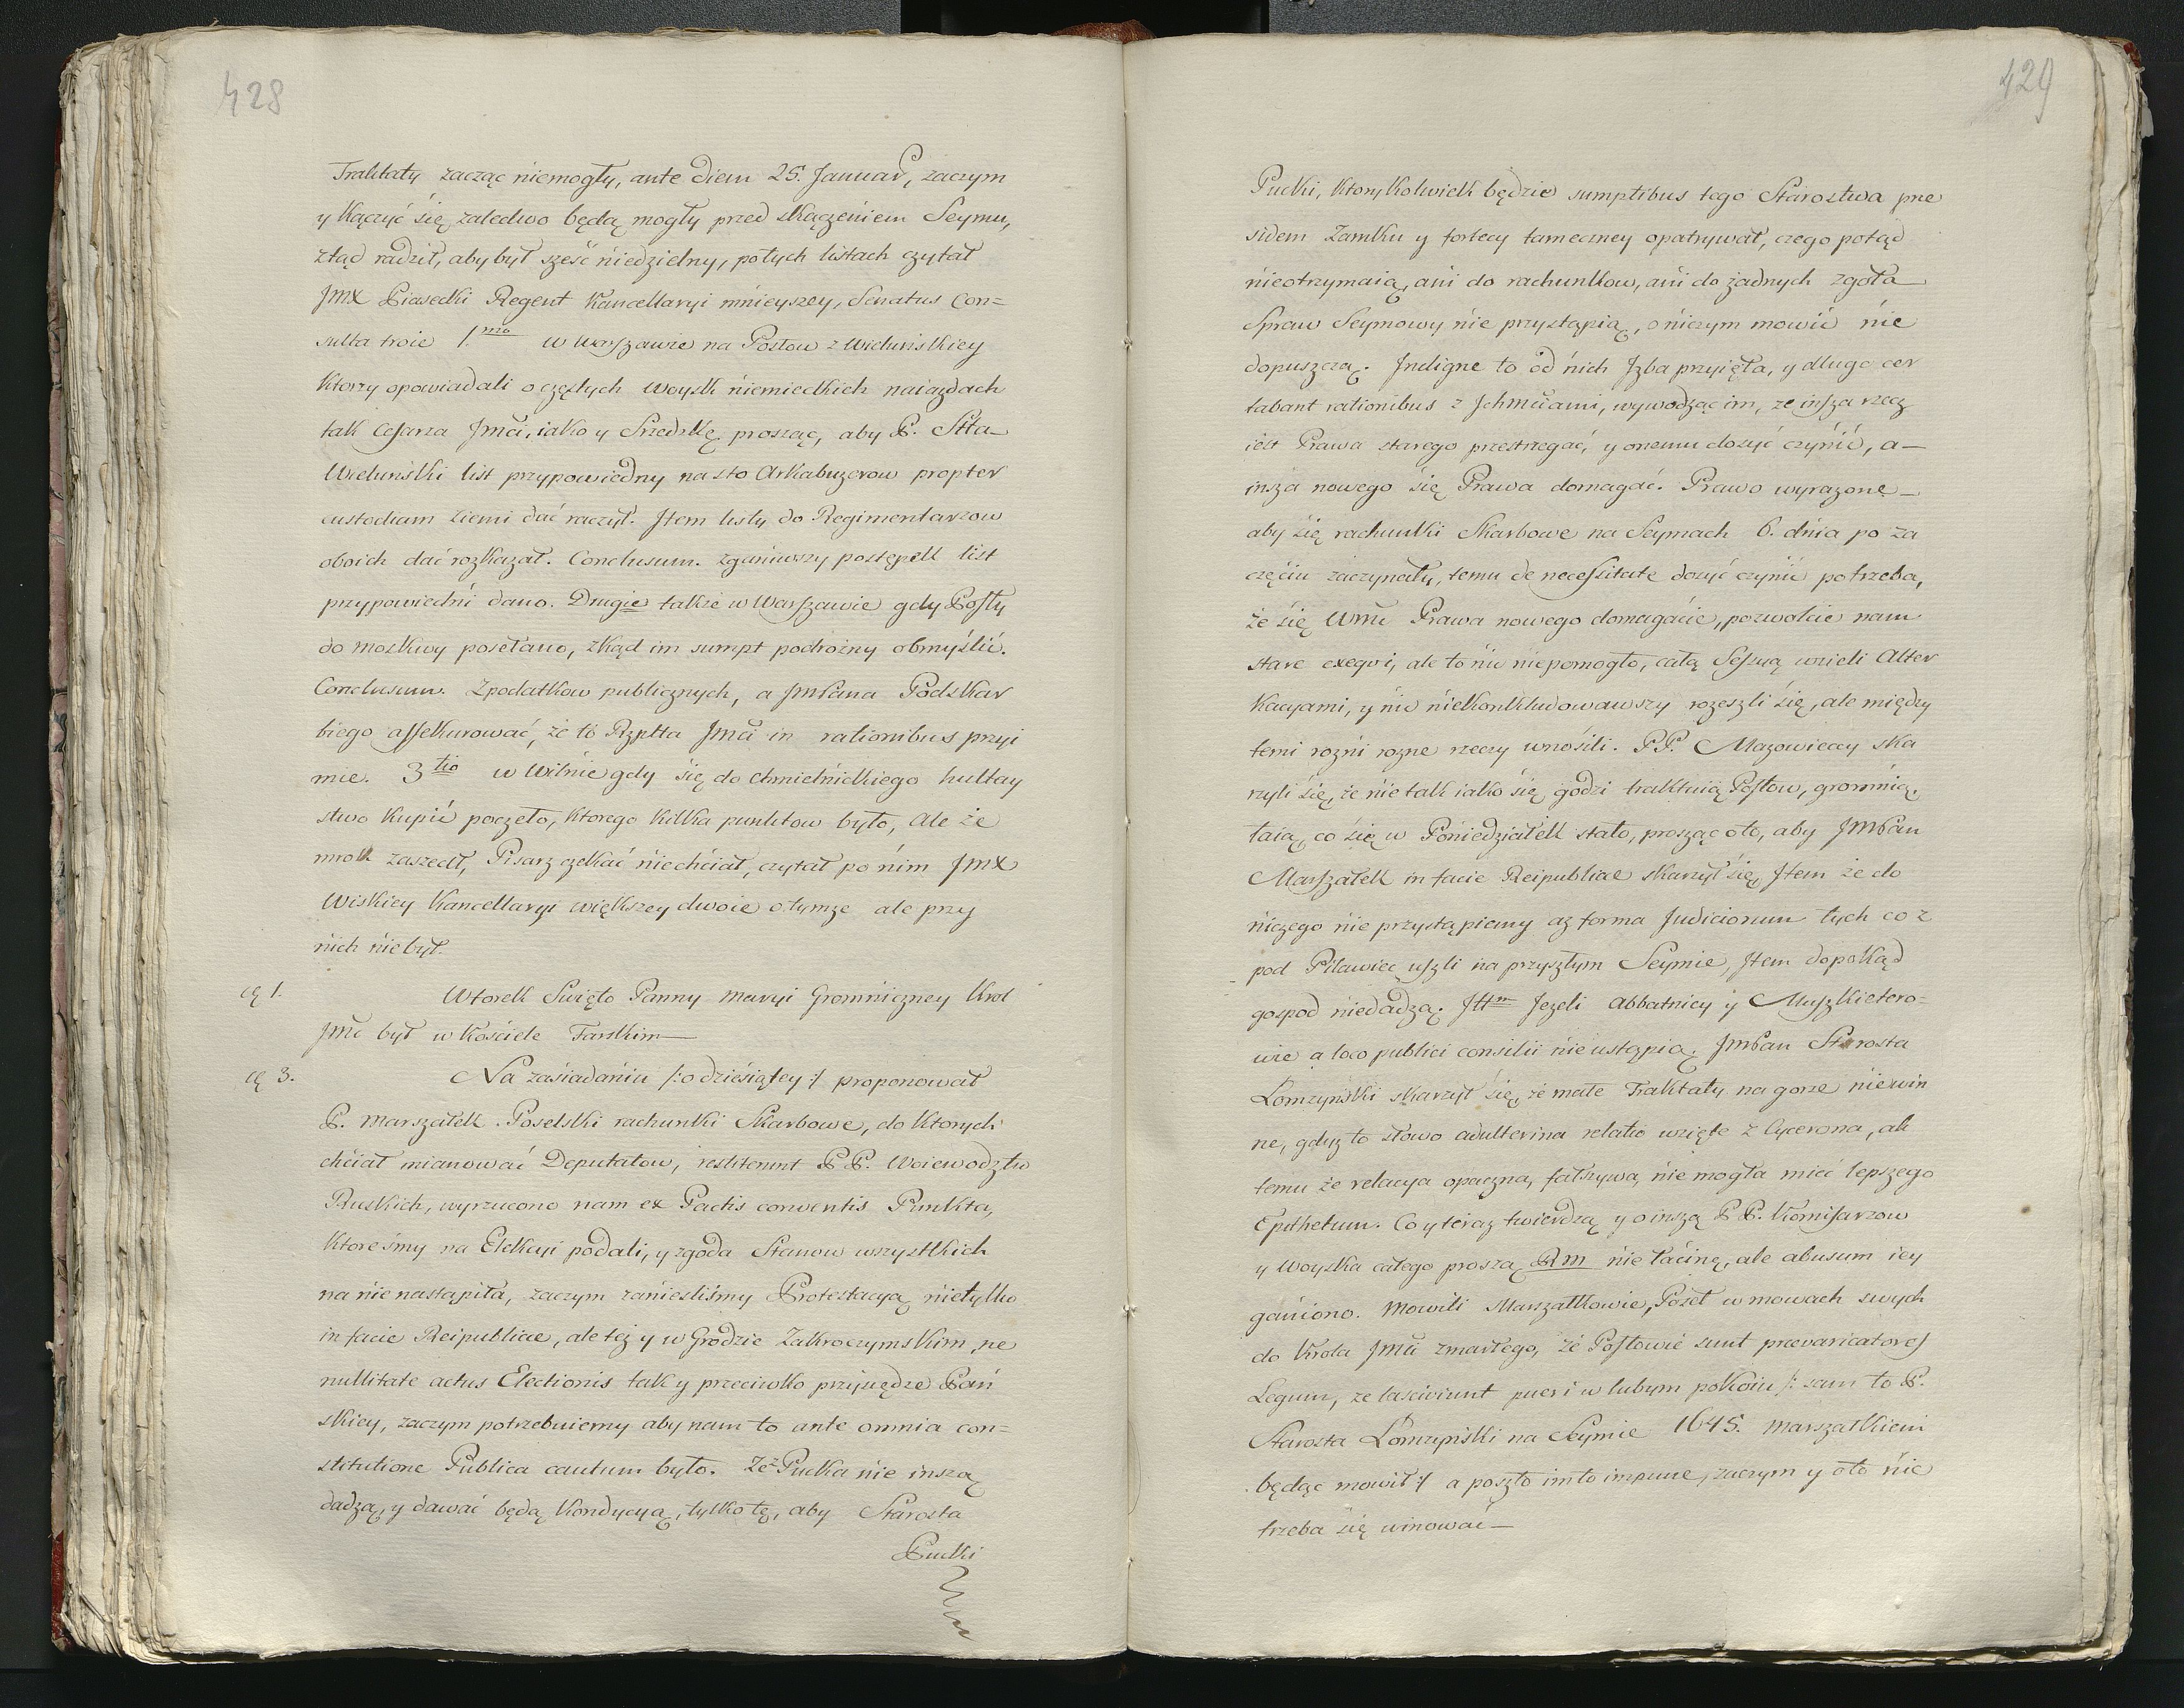 428
Traktaty zacząc niemogły, ante diem 25. Januar, zaczym
y kączyć się zaledwo będą mogły przed skączęniem Seymu,
ztąd radził, aby był sześć niedzielny, potych listach czytał
JmX Piasecki Regent Kancellaryi mnieyszey, Senatus Con=
sulta troie 1.mo w Warszawie na Posłow z Wieluńskiey
Ktorzy opowiadali o częstych Woysk niemieckich naiazdach
tak Cesarza Jmci, iako y Szwedzkę prosząc, aby P. Stta
Wieluński list przypowiedny na sto Arkabuzerow propter
custodiam ziemi dać raczył. Jtem listy do Regimentarzow
oboich dać rozkazał. Conclusum. zganiwszy postępek list
przypowiedni dano. Drugie takie w Warszawie gdy Posły
do Moskwy posełano, zkąd im sumpt podrożny obmyślić.
Conclusum. Zpodatkow publicznych, a JmPana Podskar
biego assekurować, że to Rzptta Jmci in rationibus przyi
mie. 3tio w Wilnie gdy się do Chmielnickiego hultay
stwo kupić poczęło, Ktorego Kilka punktow było, ale że
mrok zaszedł, Pisarz czekać niechciał, czytał po nim JmX
Wiskiey Kancellaryi większey dwoie o tymze ale przy
nich niebył.
1. Wtorek Swięto Panny Maryi Gromniczney Krol
Jmć był w Kościele Farskim
3. Na zasiadaniu /: o dziesiątey :/ proponował
P. Marszałek Poselski rachunki Skarbowe, do Ktorych
chciał mianować Deputatow, restiterunt PP. Woiewodztw
Ruskich, wyrzucono nam ex Pactis conventis Punkta,
Ktoreśmy na Elekcyi podali, y zgoda Stanow wszystkich
na nie nastąpiła, zaczym zanieśliśmy Protestacyą nietylko
in facie Reipublicae, ale też y w Grodzie Zakroczymskim, ne
nullitate actus Electionis tak y przeciwko przysiędze Pań
skiey, zaczym potrzebuiemy aby nam to ante omnia con=
stitutione Publica cautum było. Że Pucka nie inszą
dadzą, y dawać będą Kondycyą, tylko tę, aby Starosta
Pucki
429
Pucki, Ktory Kolwiek będzie sumptibus tego Starostwa prae
sidem Zamku y fortecy tameczney opatrywał, czego potąd
nieotrzymaią, ani do rachunkow, ani do żadnych zgoła
Spraw Seymowy nie przystąpią, o niczym mowić nie
dopuszczą. Indigne to od nich Jzba przyięła, y długo cer
tabant rationibus z Jchmciami, wywodząc im, ze insza rzecz
iest Prawa starego przestrzegać, y onemu dosyć czynić, a
insza nowego się Prawa domagać. Prawo wyrazone
aby się rachunki Skarbowe na Seymach 6. dnia po za
częciu zaczynały, temu de necessitate dosyć czynić potrzeba,
że się Wmć Prawa nowego domagacie, pozwolcie nam
stare exeqvi, ale to nic niepomogło, całą Sessyą wzieli Alter
Kacyami, y nic niekonkludowawszy rozeszli się, ale między
temi rozni rozne rzeczy wnosili. PP. Mazowieccy ska
rzyli się, że nie tak iako się godzi traktuią Posłow, gromnią,
łaią, co się w Poniedziałek stało, prosząc oto, aby JmPan
Marszałek in facie Reipublicae skarzył się, Jtem że do
niczego nie przystąpiemy az forma Judiciorum tych co z
pod Piławiec uszli na przyszłym Seymie, Jtem dopokąd
gospod niedadzą. Jttm Jezeli Abbatnicy y Muszkietero=
wie a loco publici consilii nie ustąpią. JmPan Starosta
Łomzyński skarzył się, że małe Traktaty na gorze niewin
ne, gdyz to słowo adulterina relatio wzięte z Cycerona, ale
temu że relacya opaczna, fałszywa, nie mogła mieć lepszego
Epithetum. Co y teraz twierdzą y o inszą PP. Komisarzow
y Woyska całego proszą nie łacinę, ale abusum iey
ganiono. Mowili Marszałkowie, Poseł w mowach swych
do Krola Jmci zmarłego, że Posłowie sunt praevaricatores
Legum, ze lasciviunt pueri w lubym pokoiu /: sam to P.
Starosta Łomzyński na Seymie 1645. Marszałkiem
będąc mowił :/ a poszło im to impune, zaczym y oto nie
trzeba się winować